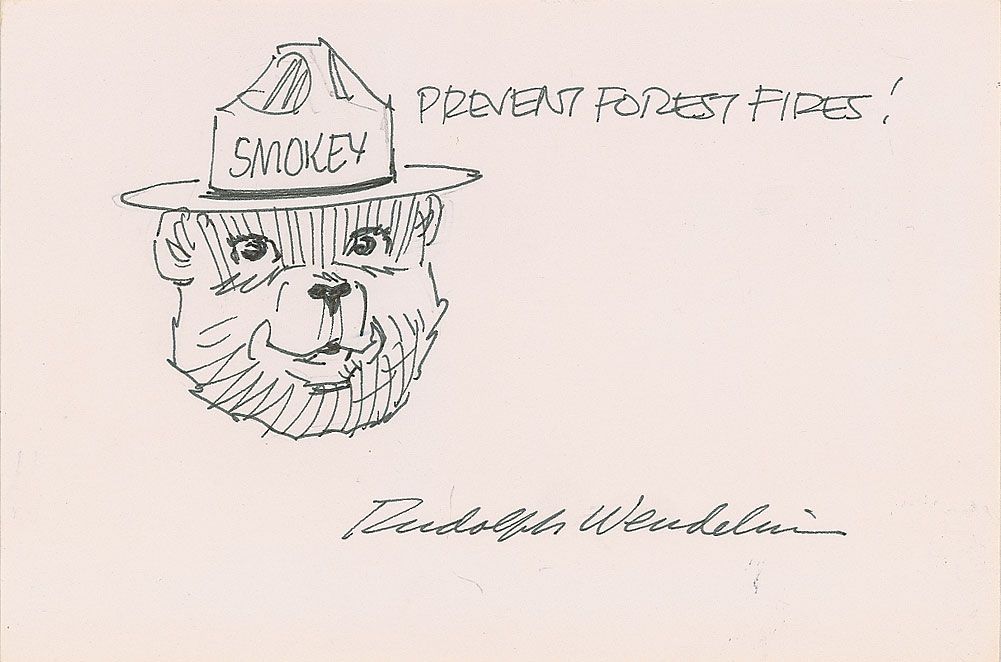 PREVENT FOREST FIRES!
SMOKEY
Rudolph Wendelin